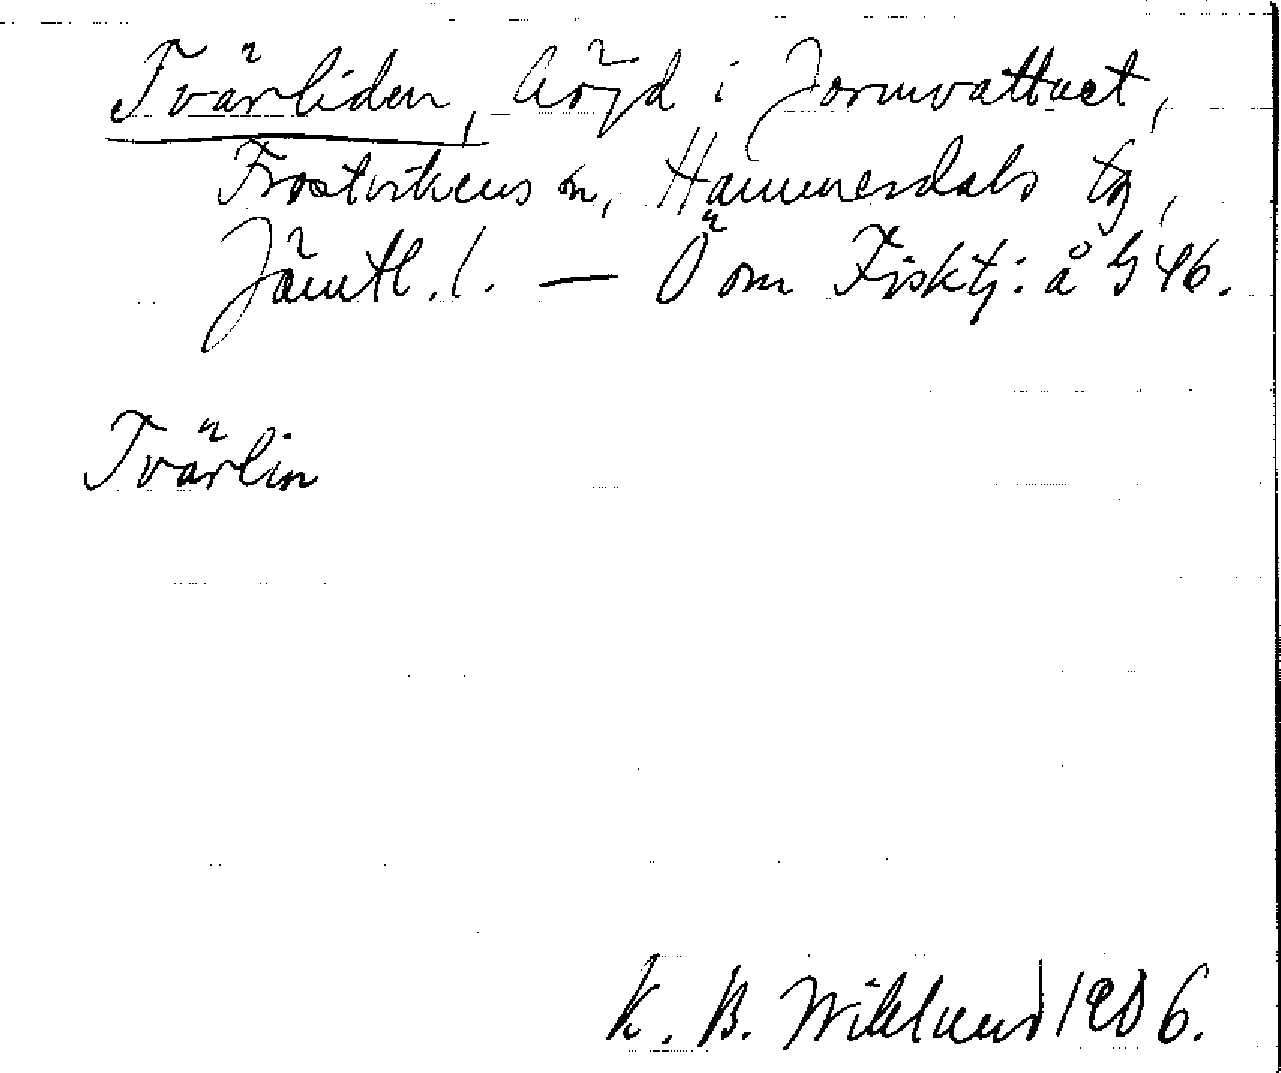 Tvärliden, höjd i Jormvattnet,
Frostvikens sn, Hammerdals tg,
Jämtl. l. — Ö om Fisktj: å G 46.
Tvärlin
K. B. Wiklund 1906.